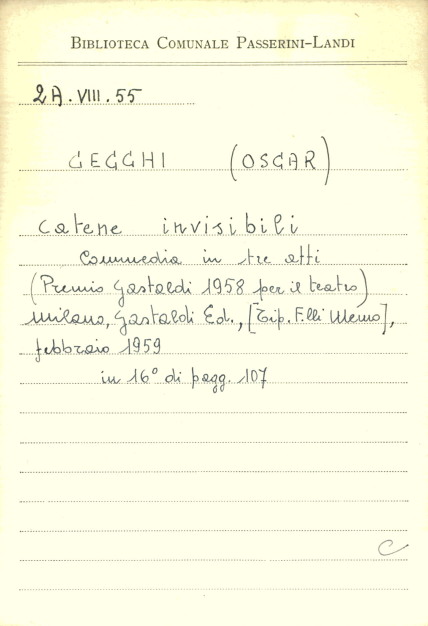 BIBLIOTECA COMUNALE PASSERINI-LANDI
2A.VIII.55
CECCHI (OSCAR)
Catene invisibili
Commedia in tre atti
(Premio Gastaldi 1958 per il teatro)
Milano, Gastaldi Ed., [Tip. F.lli Memo],
febbraio 1959
in 16° di pagg. 107
C